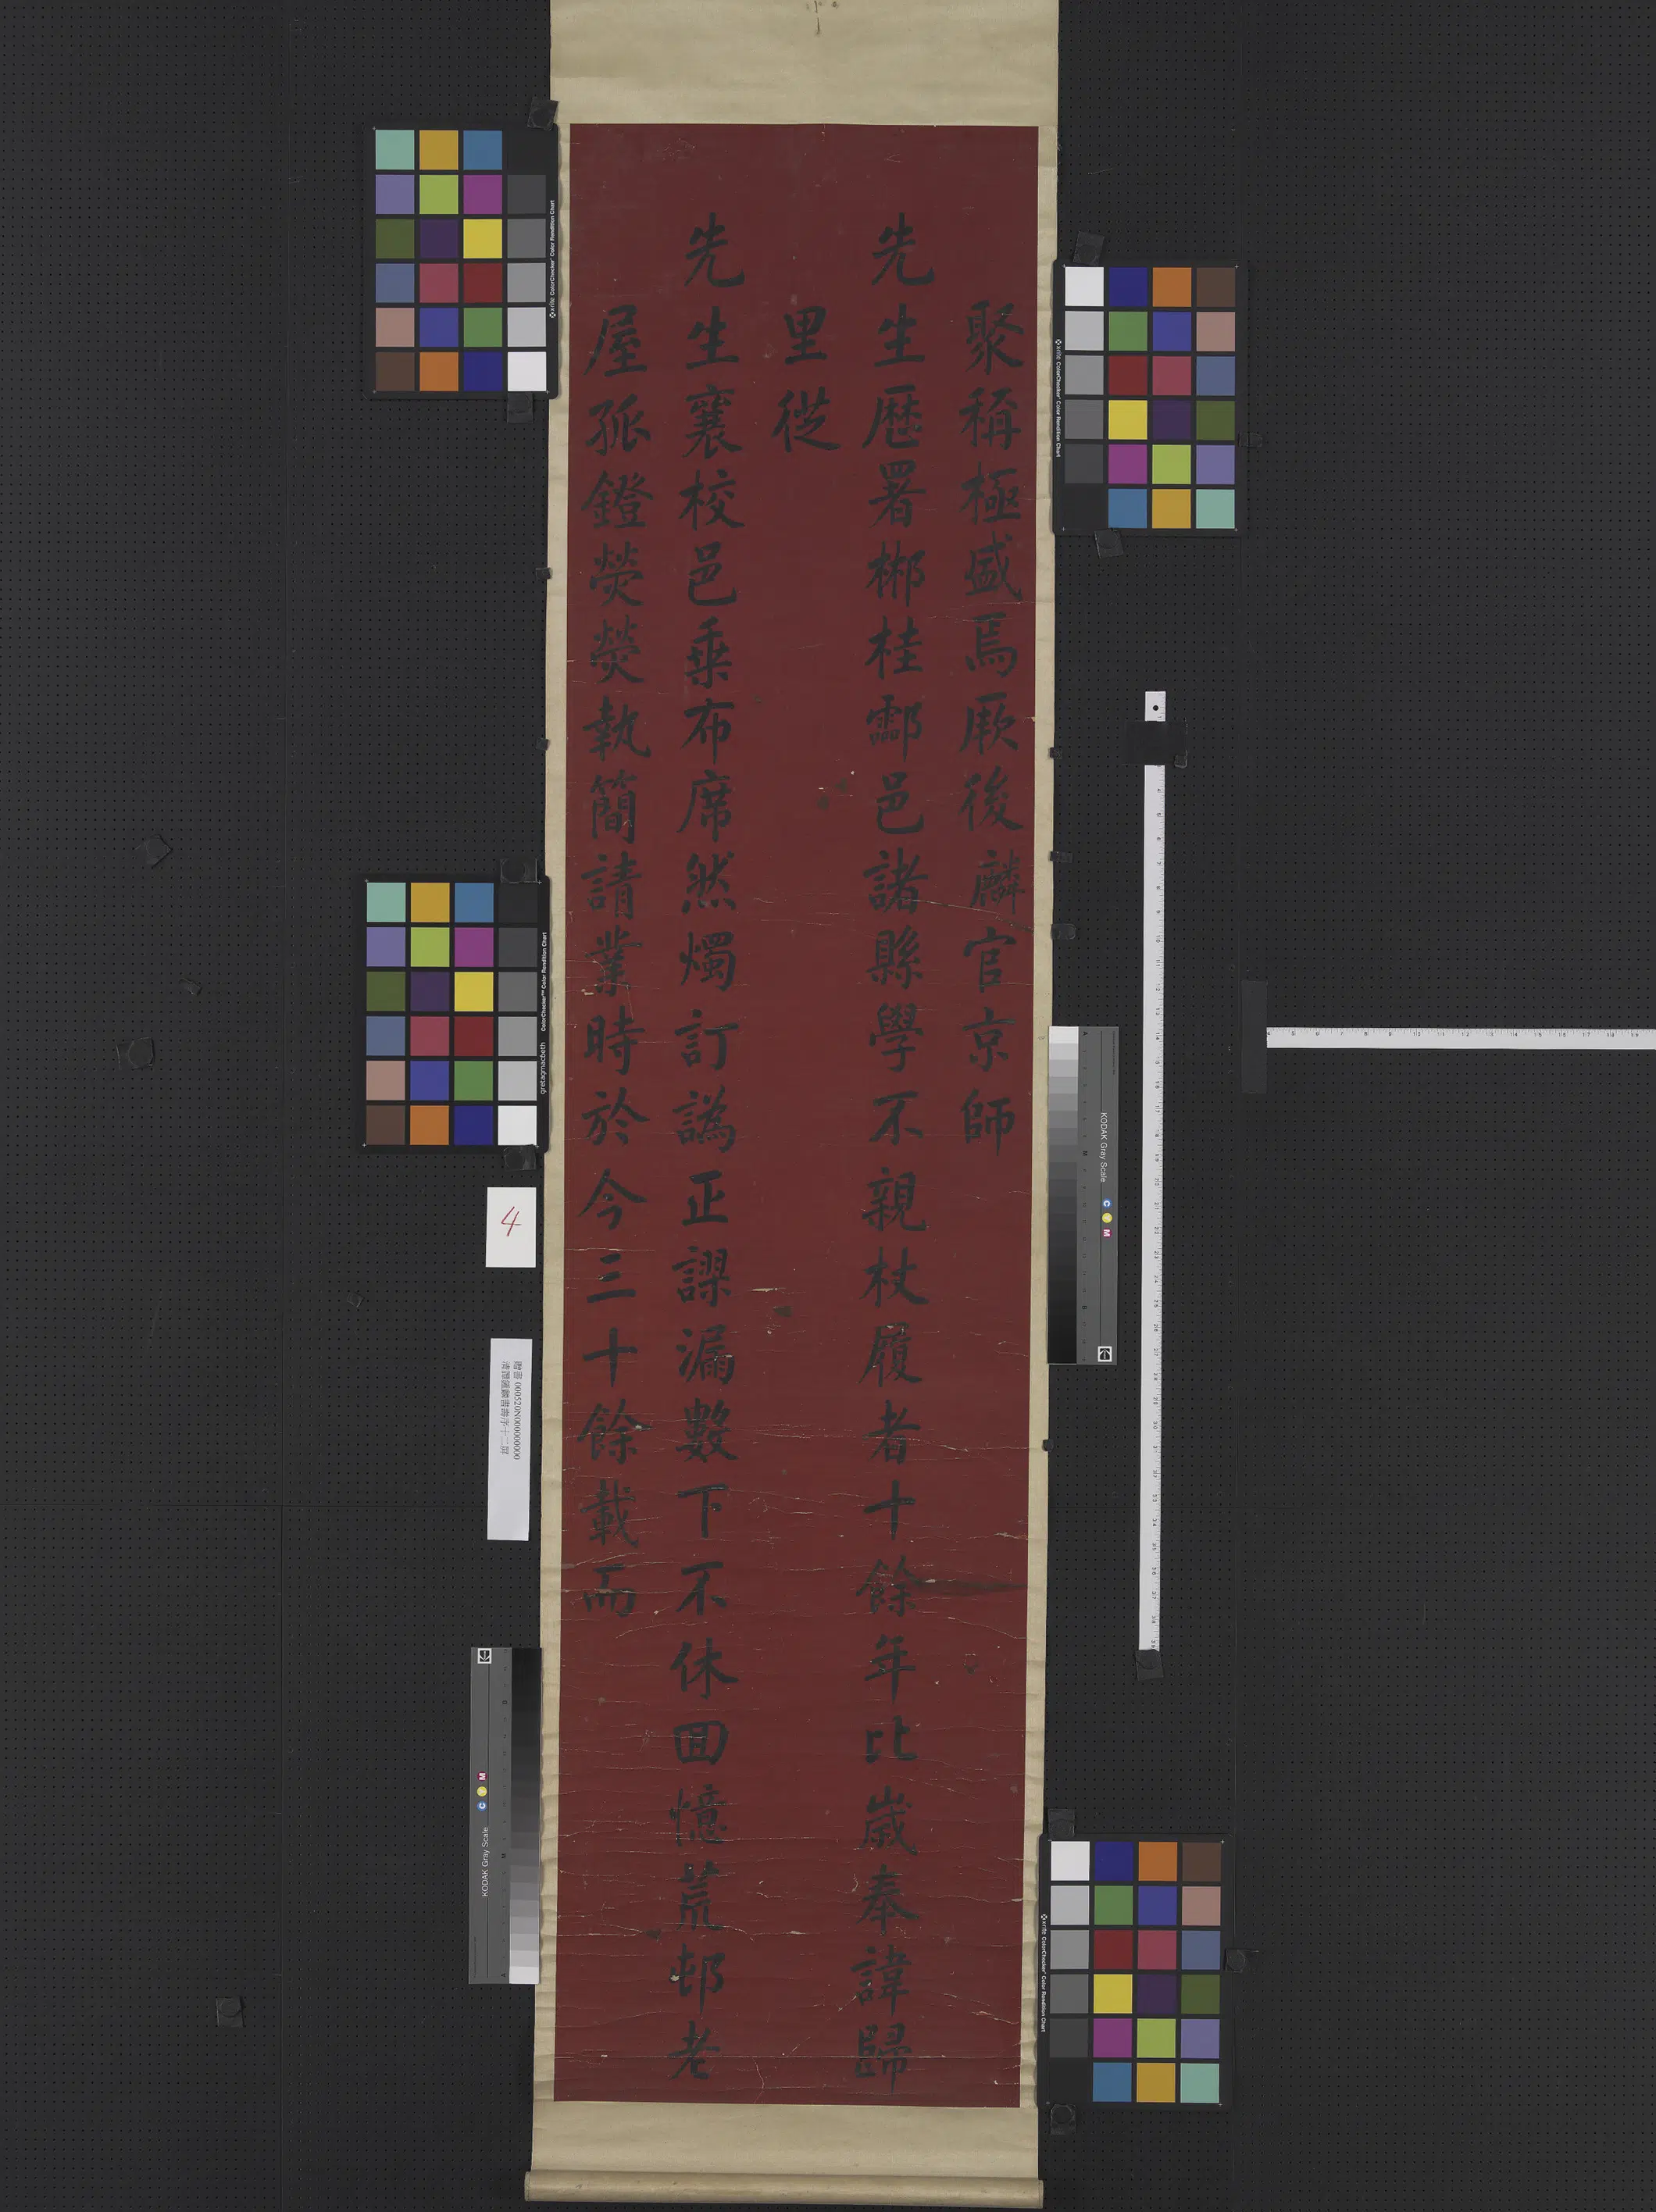 聚稱極盛焉厥後麟官京師
先生歷署郴桂酃邑諸縣學不親杖履者十餘年比歲奉諱歸
里從
先生襄校邑乘布席然燭訂譌正謬漏數下不休回憶荒邨老
屋孤鐙熒熒執簡請業時於今三十餘載而
4
贈書 000520N000000000
xrite ColorChecker Color Rendition Chart
xrite ColorChecker Color Rendition Chart
ColorChecker Color Rendition Chart gretagmacbeth
xrite ColorChecker Color Rendition Chart
KODAK Gray Scale
C Y M
KODAK Gray Scale
C Y M